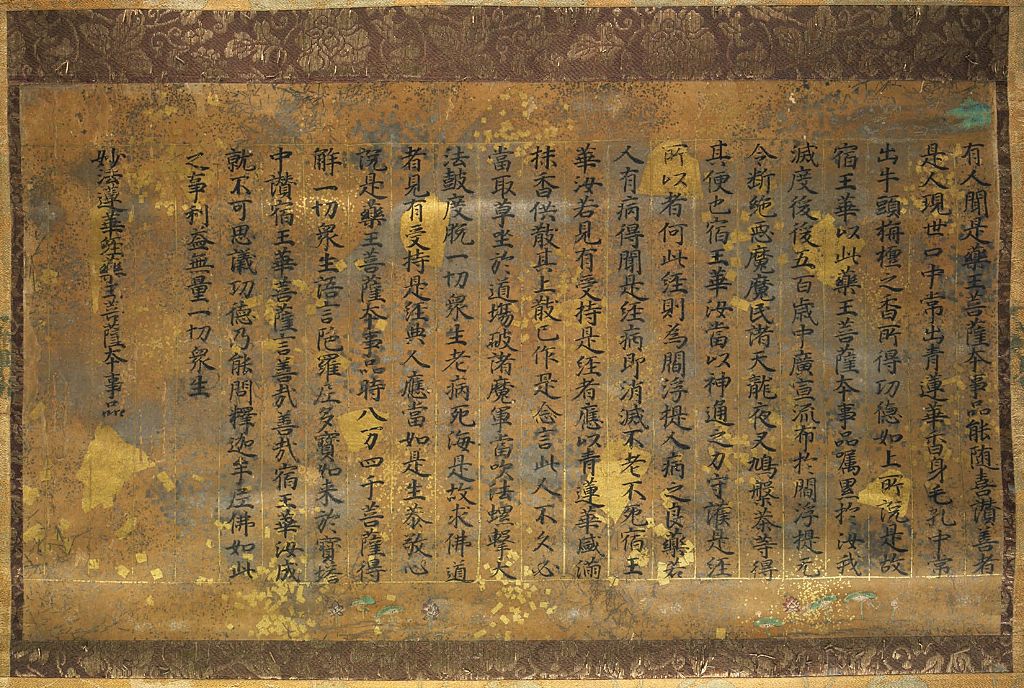 有人聞是藥王菩薩本事品能随喜讃善者
是人現世口中常出青蓮華香身毛孔中常
出牛頭栴檀之香所得功徳如上所説是故
宿王華以此藥王菩薩本事品嘱累於汝我
滅度後後五百歳中廣宣流布於閻浮提无
令断絶悪魔魔民諸天龍夜叉鳩槃荼等得
其便也宿王華汝當以神通之力守護是経
所以者何此経則為閻浮提人病之良藥若
人有病得聞是経病即消滅不老不死宿王
華汝若見有受持是経者應以青蓮華盛滿
抹香供散其上散已作是念言此人不久必
當取草坐於道場破諸魔軍當吹法䗍撃大
法鼓度脱一切衆生老病死海是故求佛道
者見有受持是経典人應當如是生恭敬心
説是藥王菩薩本事品時八万四千菩薩得
解一切衆生語言陁羅尼多寶如来於寶塔
中讃宿王華菩薩言善哉善哉宿王華汝成
就不可思議功徳乃能問釋迦牟尼佛如此
之事利益無量一切衆生
妙法蓮華経藥王菩薩本事品